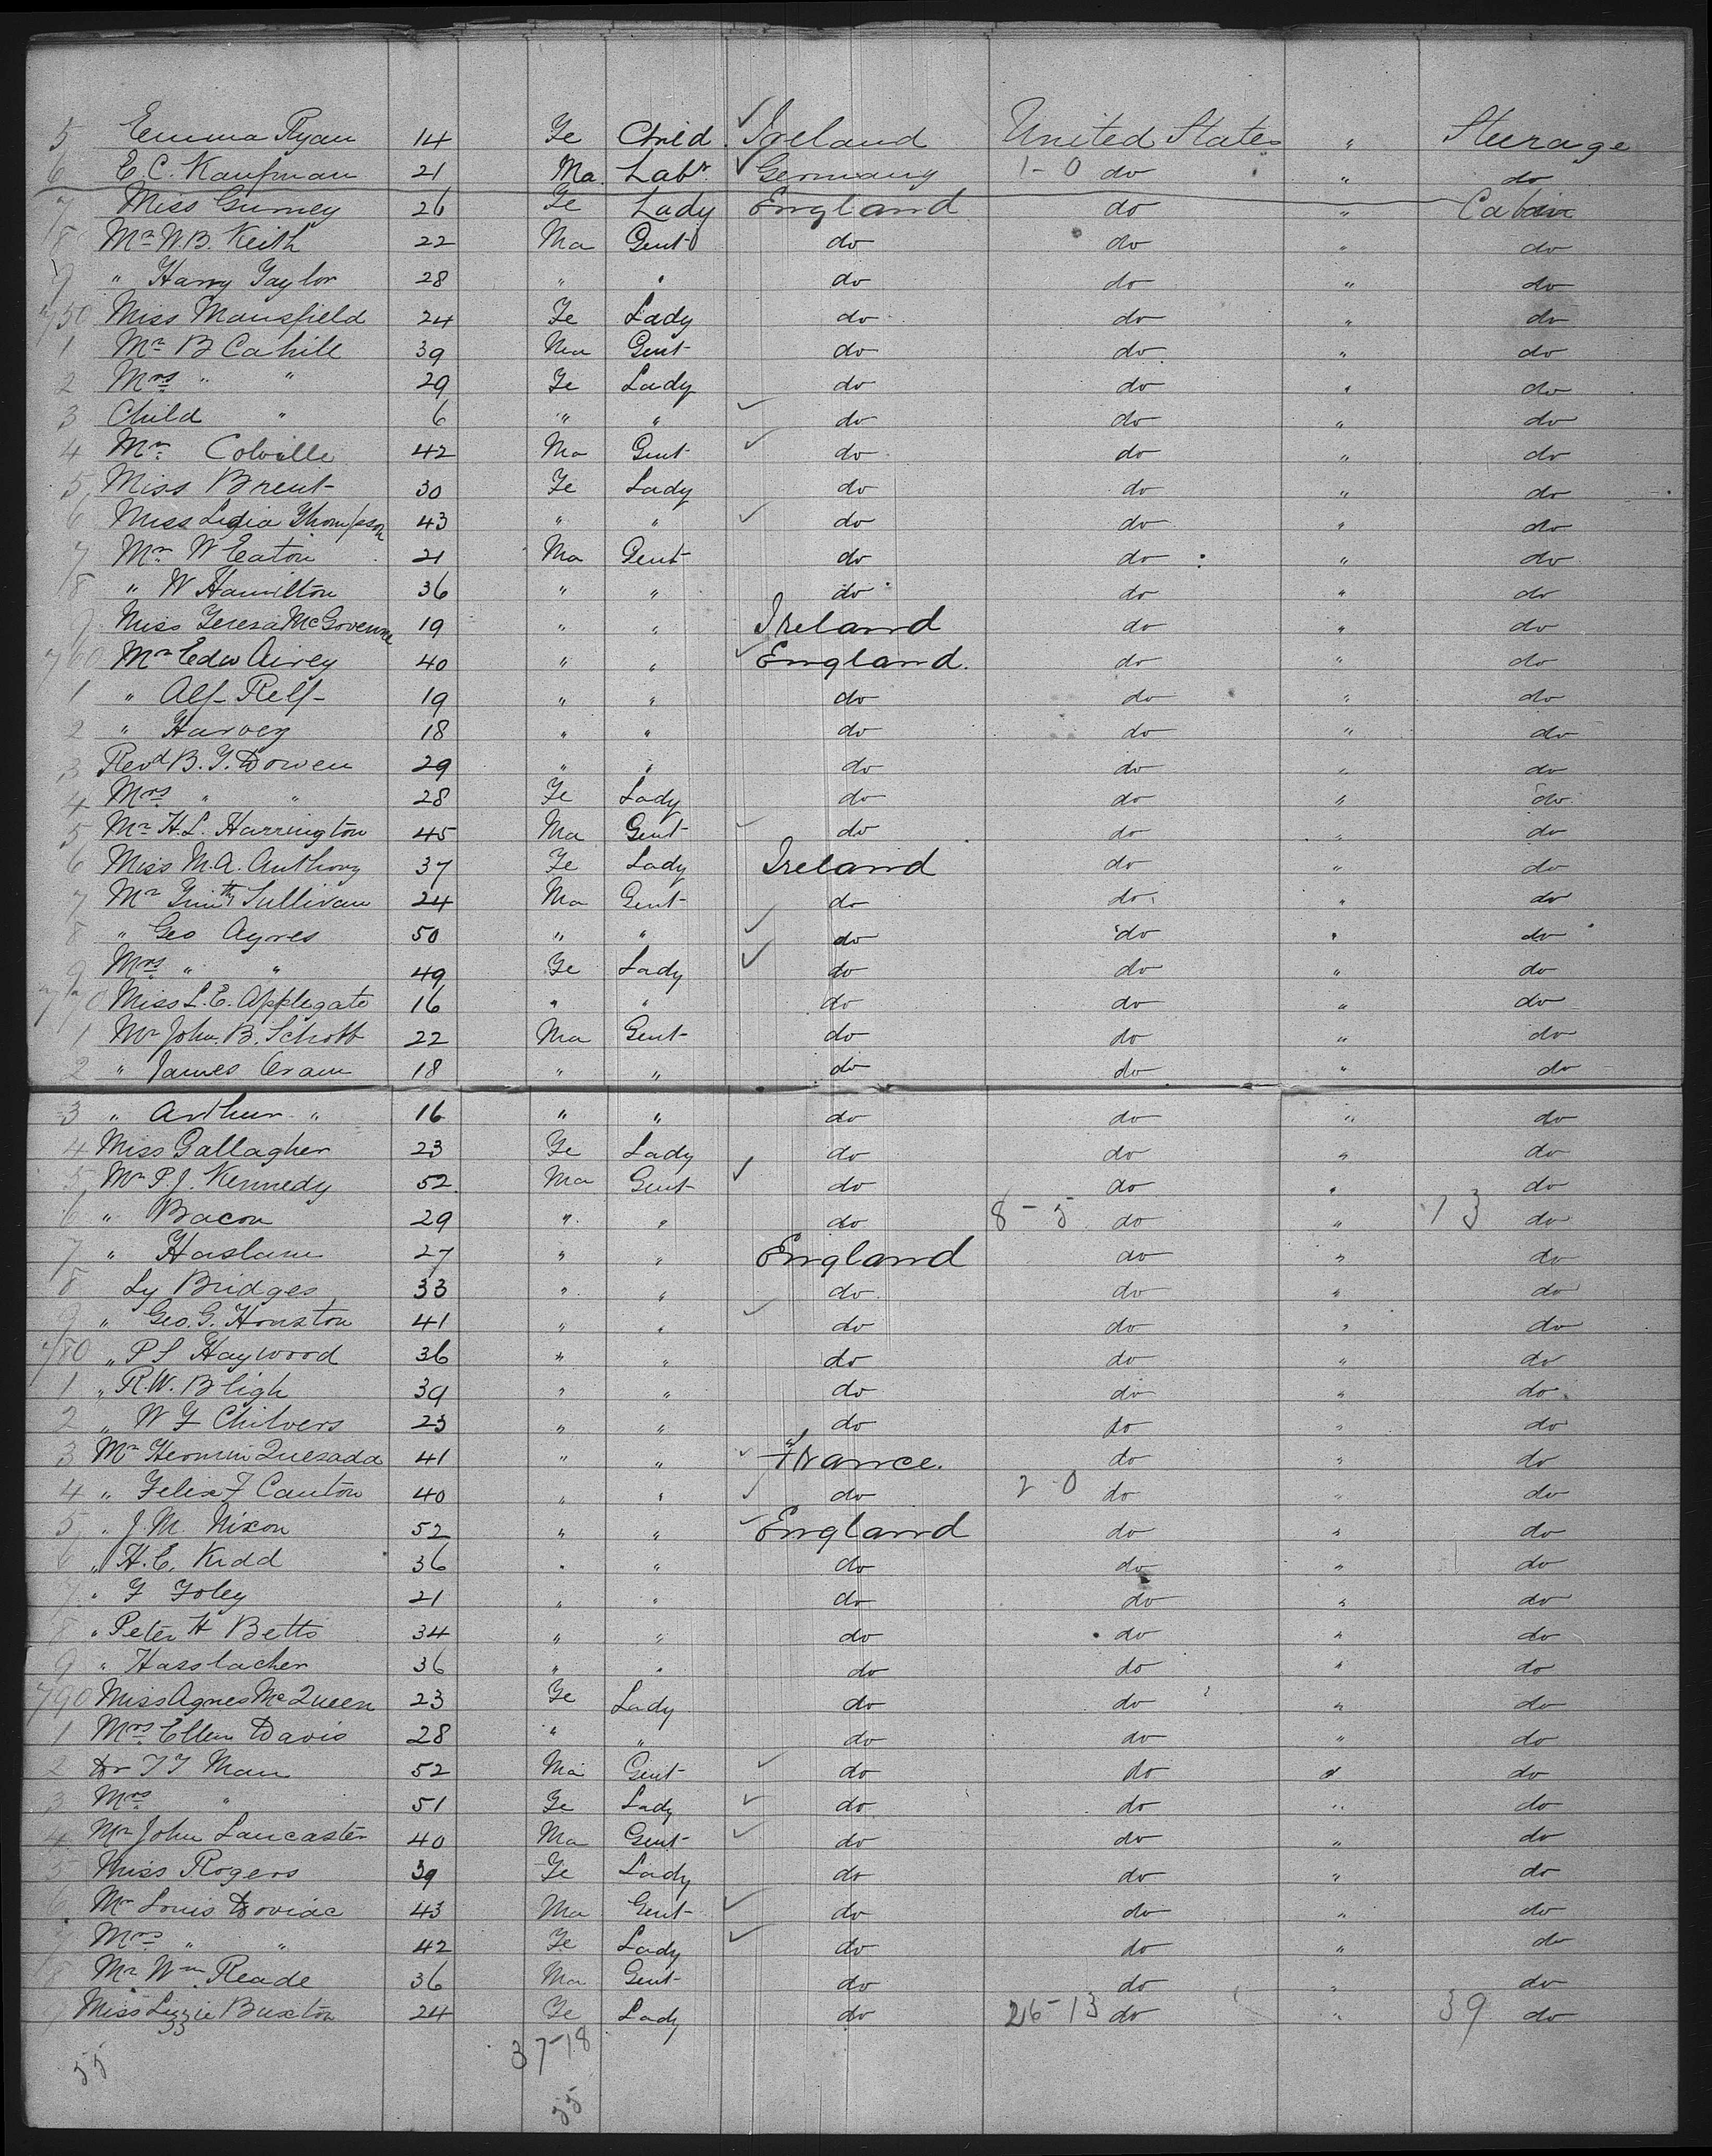 5 Emma Ryan 14 Fe Child Ireland United States " Steerage
6 E. C. Kaufman 21 Ma. Labr. Germany 1-0 do " do
7 Miss Gurney 26 Fe Lady England do " Cabin
8 Mr W. B. Keith 22 Ma Gent do do " do
9 " Harry Taylor 28 " " do do " do
750 Miss Mansfield 24 Fe Lady do do " do
1 Mr B Cahill 39 Ma Gent do do " do
2 Mrs " " 29 Fe Lady do do " do
3 Child " 6 " " do do " do
4 Mr Colville 42 Ma Gent do do " do
5 Miss Brent 30 Fe Lady do do " do
6 Miss Lydia Thompson 43 " " do do " do
7 Mr W Eaton 21 Ma Gent do do " do
8 " W Hamilton 36 " " do do " do
9 Miss Teresa McGovenne 19 " " Ireland do " do
760 Mr Edw Airey 40 " " England. do " do
1 " Alf Relf 19 " " do do " do
2 " Harvey 18 " " do do " do
3 Revd B. T. Dowen 29 " " do do " do
4 Mrs " " 28 Fe Lady do do " do
5 Mr H. L. Harrington 45 Ma Gent do do " do
6 Miss M. A. Anthony 37 Fe Lady Ireland do " do
7 Mr Timthy Sullivan 24 Ma Gent do do " do
8 " Geo Ayres 50 " " do do " do
9 Mrs " " 49 Fe Lady do do " do
770 Miss L. E. Applegate 16 " " do do " do
1 Mr John. B. Schott 22 Ma Gent do do " do
2 " James Cram 18 " " do do " do
3 " Arthur " 16 " " do do " do
4 Miss Gallagher 23 Fe Lady do do " do
5 Mr P. J. Kennedy 52 Ma Gent do do " do
6 " Bacon 29 " " do 8-5 do " 13 do
7 " Haslam 27 " " England do " do
8 Ly Bridges 33 " " do do " do
9 " Geo. G. Houston 41 " " do do " do
780 " P S Haywood 36 " " do do " do
1 " R. W. Bligh 39 " " do do " do
2 " W F Chilvers 23 " " do do " do
3 Mr Hermin Quesada 41 " " France. do " do
4 " Felix F Canton 40 " " do 2-0 do " do
5 " J. M. Nixon 52 " " England do " do
6 " H. E. Kidd 36 " " do do " do
7 " F Foley 21 " " do do " do
8 " Peter H Betts 34 " " do do " do
9 " Hasslacher 36 " " do do " do
790 Miss Agnes McQueen 23 Fe Lady do do " do
1 Mrs Ellen Davis 28 " " do do " do
2 Dr T T Man 52 Ma Gent do do " do
3 Mrs " 51 Fe Lady do do " do
4 Mr John Lancaster 40 Ma Gent do do " do
5 Miss Rogers 39 Fe Lady do do " do
6 Mr Louis Doviac 43 Ma Gent do do " do
7 Mrs " " 42 Fe Lady do do " do
8 Mr Wm Reade 36 Ma Gent do do " do
9 Miss Lizzie Buxton 24 Fe Lady do 26-13 do " 39 do
55 37-18
55